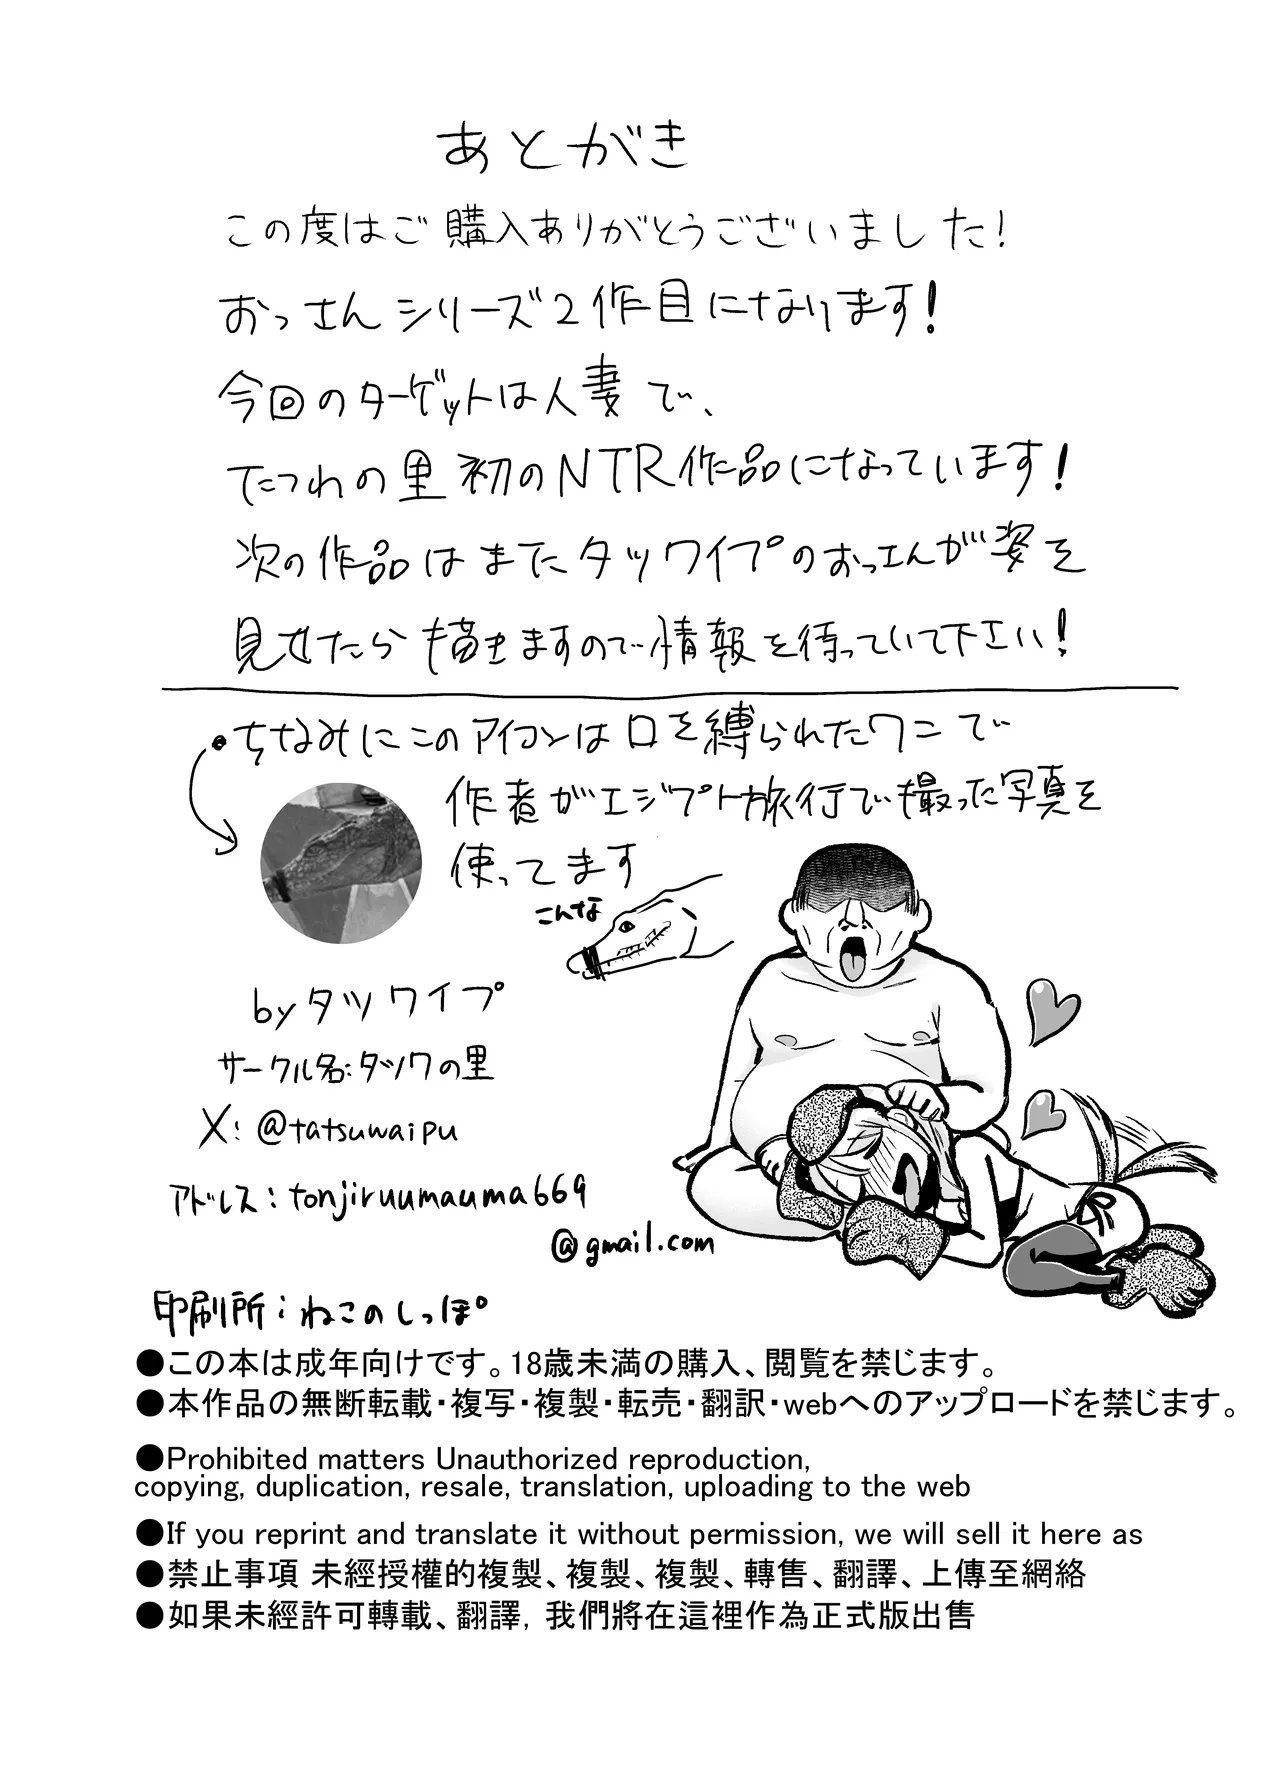 あとがき
この度はご購入ありがとうございました!
おっさんシリーズ2作目になります!
今回のターゲットは人妻で、
たつわの里初のNTR作品になっています!
次の作品はまたタツワイプのおっさんが姿を
見せたら描きますので情報を待っていて下さい!
ちなみにこのアイコンは口を縛られたワニで
作者がエジプト旅行で撮った写真を
使ってます
こんな
byタツワイプ
サークル名:タツワの里
X:@tatsuwaipu
アドレス:tonjiruumauma669
@gmail.com
印刷所:ねこのしっぽ
●この本は成年向けです。18歳未満の購入、閲覧を禁じます。
●本作品の無断転載・複写・複製・転売・翻訳・webへのアップロードを禁じます。
●Prohibited matters Unauthorized reproduction,
copying, duplication, resale, translation, uploading to the web
●If you reprint and translate it without permission, we will sell it here as
●禁止事項 未經授權的複製、複製、複製、轉售、翻譯、上傳至網絡
●如果未經許可轉載、翻譯, 我們將在這裡作為正式版出售